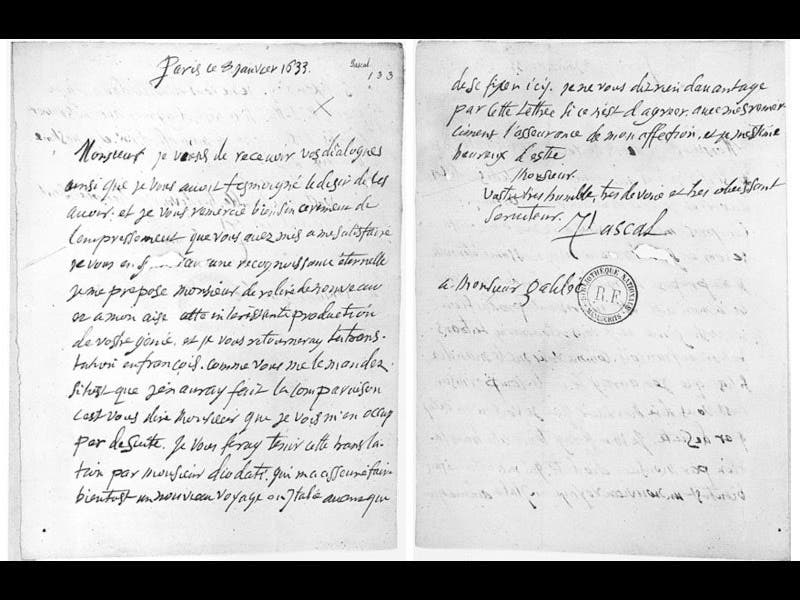 Paris ce 8 Janvier 1633.
Pascal
133
Monsieur je viens de recevoir vos dialogues
ainsi que je vous avois tesmoigné le desir de les
avoir. et je vous remercie bien sincerement de
l'empressement que vous avez mis a me satisfaire
je vous en une recognoissance éternelle
je me propose monsieur de relire de nouveau
et a mon aise cette interessante production
de vostre génie. et je vous retourneray la trans
lation en françois. comme vous me le mandez.
sitost que j'en auray fait la comparaison
c'est vous dire Monsieur que je vais m'en occup
par de suite. Je vous feray tenir cette transla-
tion par monsieur diodati. qui m'a asseuré faire
bientost un nouveau voyage en Italie avant que
de se fixer icy. je ne vous diz rien davantage
par cette lettre si ce n'est d'agreer. avec mes remer
ciment l'asseurance de mon affection. et je m'estime
heureux d'estre
Monsieur
Vostre tres humble, tres devoué et tres obeissant
serviteur.
Pascal
a Monsieur galilé
BIBLIOTHÈQUE NATIONALE
R.F.
MANUSCRITS